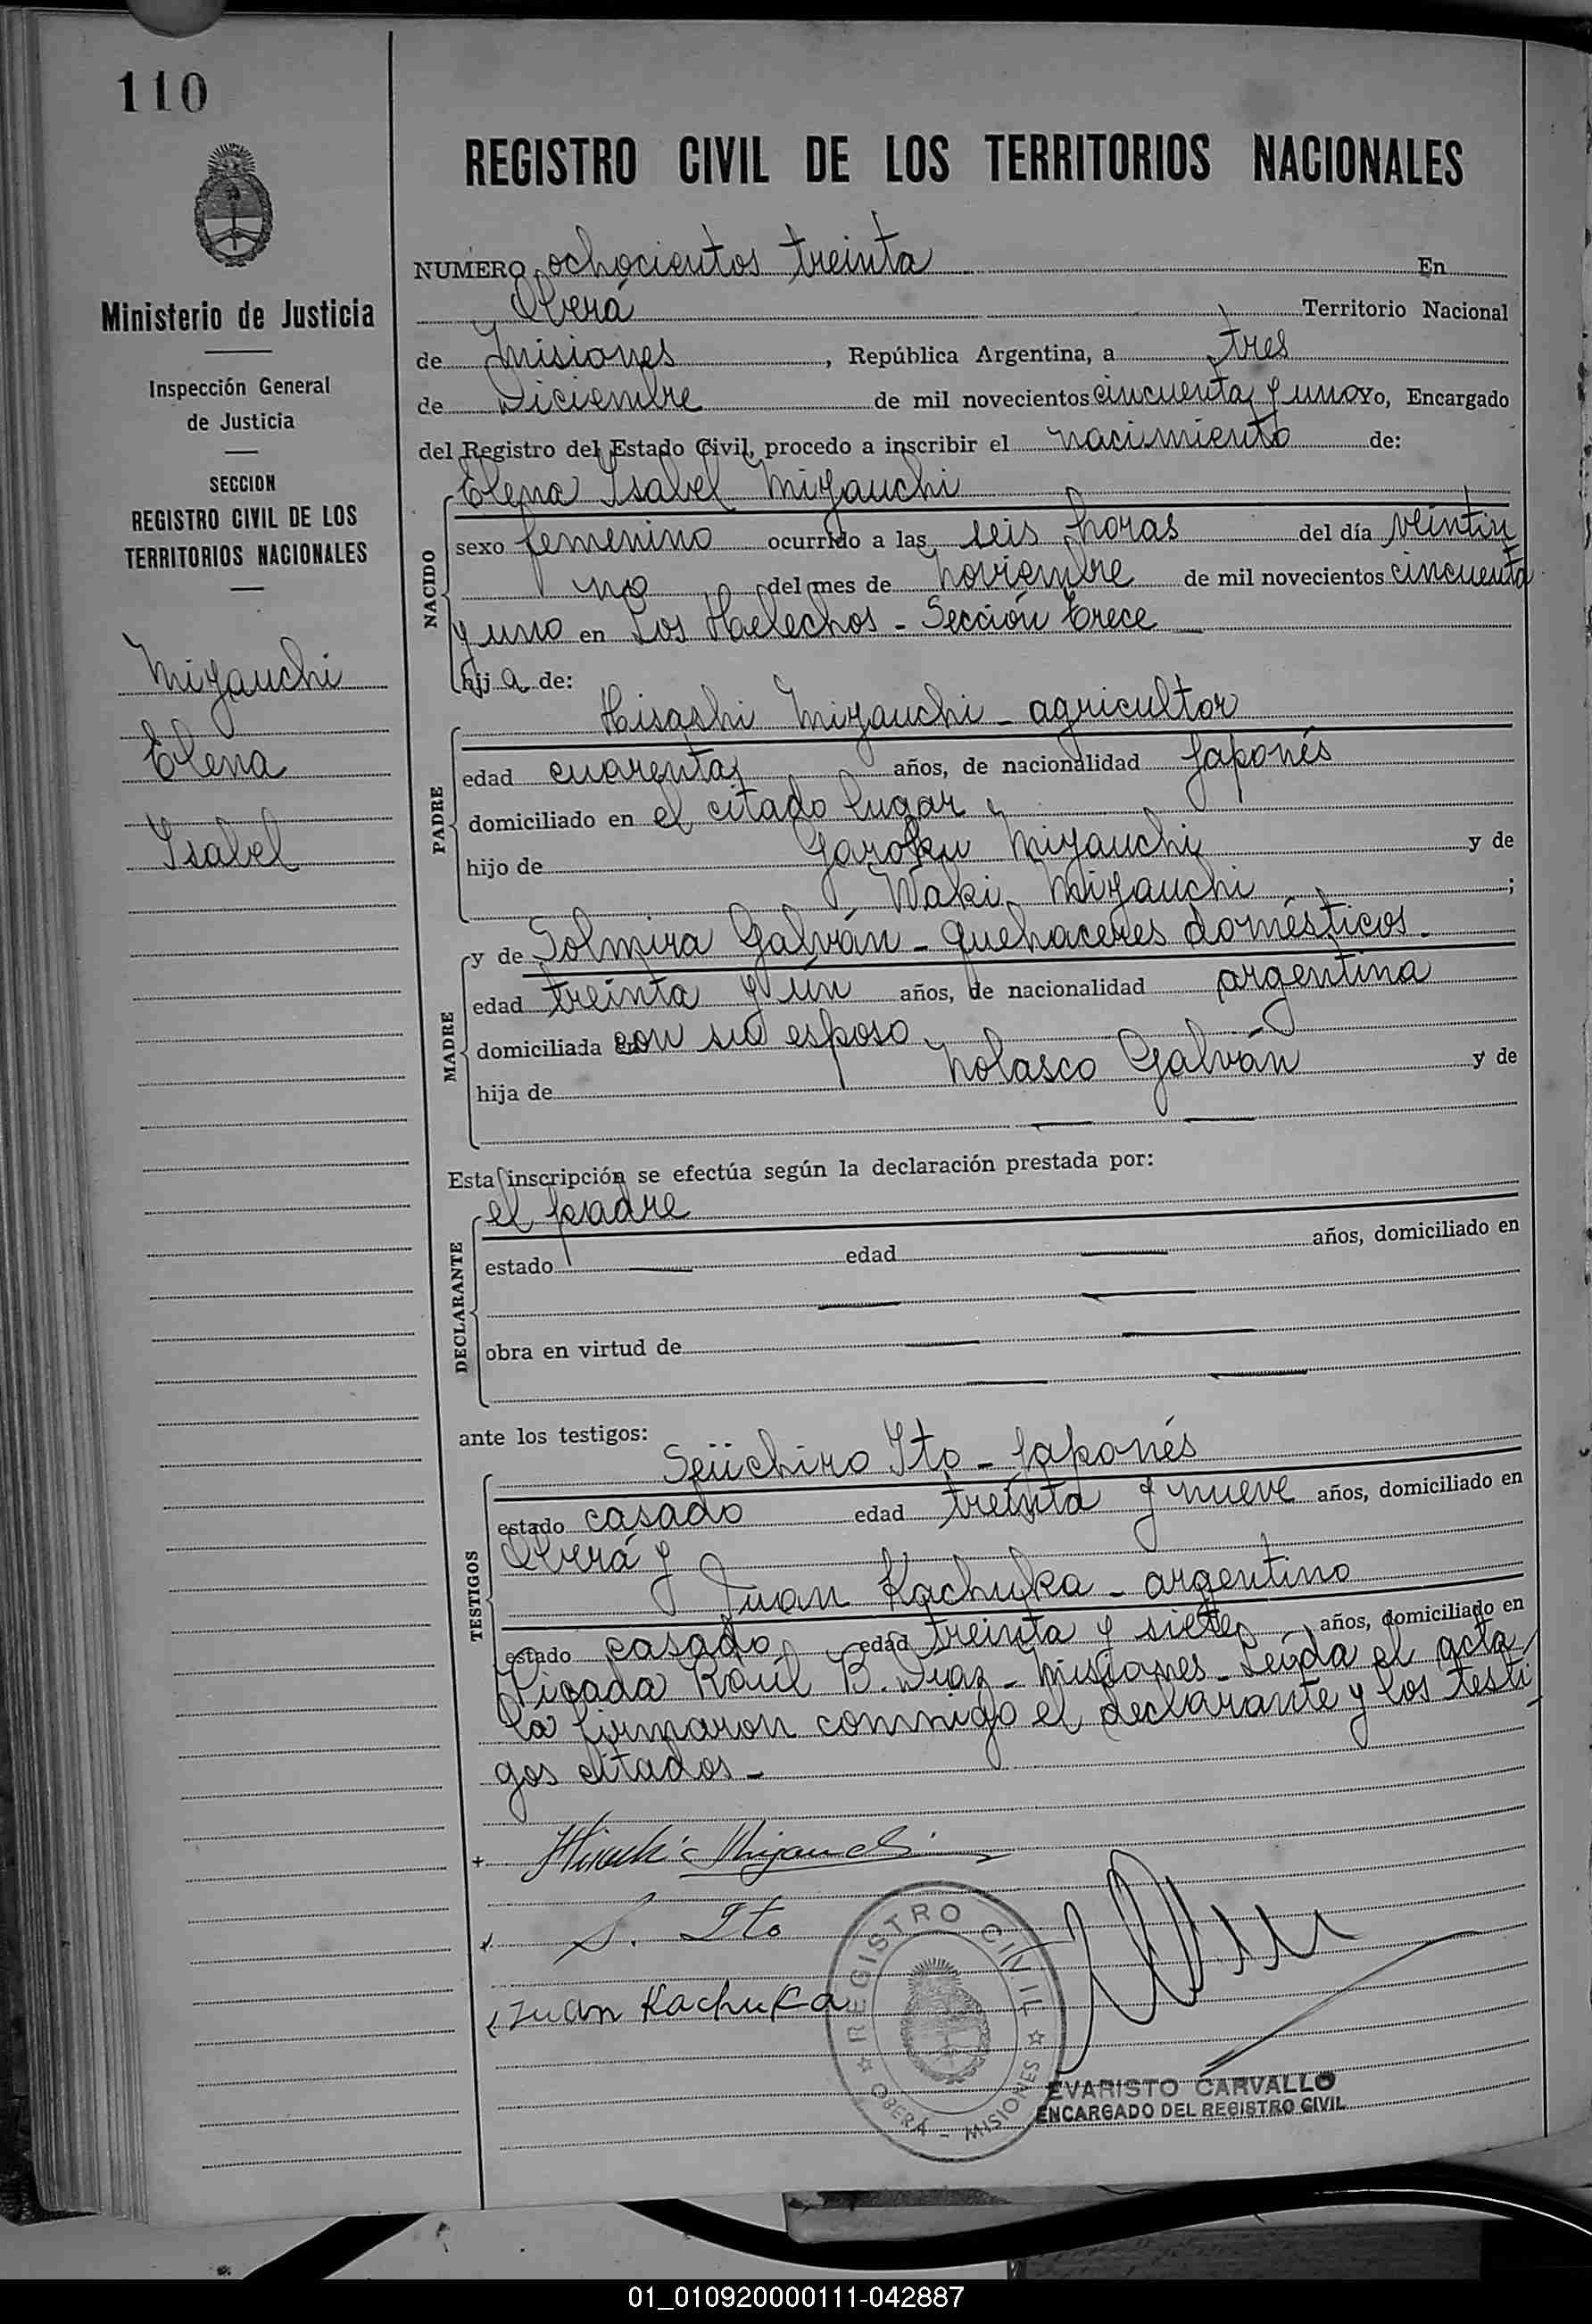 110
REGISTRO CIVIL DE LOS TERRITORIOS NACIONALES
Ministerio de Justicia
Inspección General
de Justicia
SECCION
REGISTRO CIVIL DE LOS
TERRITORIOS NACIONALES
Miyauchi
Elena
Isabel
NUMERO ochocientos treinta En
Oberá Territorio Nacional
de Misiones, República Argentina, a tres
de Diciembre de mil novecientos cincuenta y uno Yo, Encargado
del Registro del Estado Civil, procedo a inscribir el nacimiento de:
NACIDO
Elena Isabel Miyauchi
sexo femenino ocurrido a las seis horas del día veintiu
no del mes de noviembre de mil novecientos cincuenta
y uno en Los Helechos - Sección Trece
hij a de:
PADRE
Hisashi Miyauchi - agricultor
edad cuarenta años, de nacionalidad Japonés
domiciliado en el citado lugar
hijo de Garoku Miyauchi y de
Waki Miyauchi ;
MADRE
y de Solmira Galván - quehaceres domésticos.
edad treinta y ún años, de nacionalidad argentina
domiciliada en con su esposo
hija de Nolasco Galván y de
Esta inscripción se efectúa según la declaración prestada por:
DECLARANTE
el padre
estado edad años, domiciliado en
obra en virtud de
ante los testigos:
TESTIGOS
Seiichiro Ito - Japonés
estado casado edad treinta y nueve años, domiciliado en
Oberá y
Juan Kachuka - argentino
estado casado edad treinta y siete años, domiciliado en
Picada Raúl B. Diaz - Misiones - Leída el acta
la firmaron conmigo el declarante y los testi
gos citados -
Miyauchi
S. Ito
Juan Kachuka
REGISTRO CIVIL
OBERA - MISIONES
EVARISTO CARVALLO
ENCARGADO DEL REGISTRO CIVIL
01_010920000111-042887